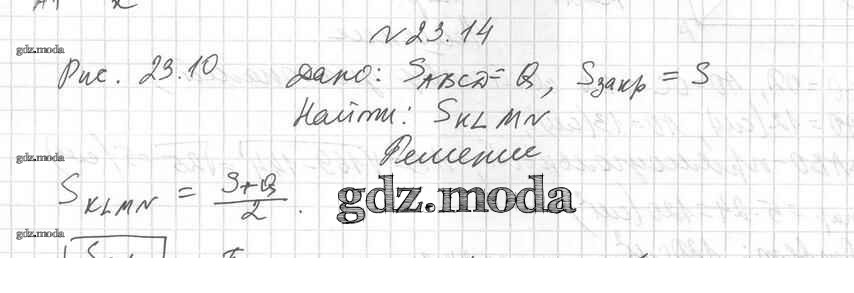 № 23.14
gdz.moda
Рис. 23.10 Дано: S_ABCD = Q, S_закр = S
Найти: S_KLMN
gdz.moda
Решение
S_KLMN = (S+Q)/2.
gdz.moda
gdz.moda